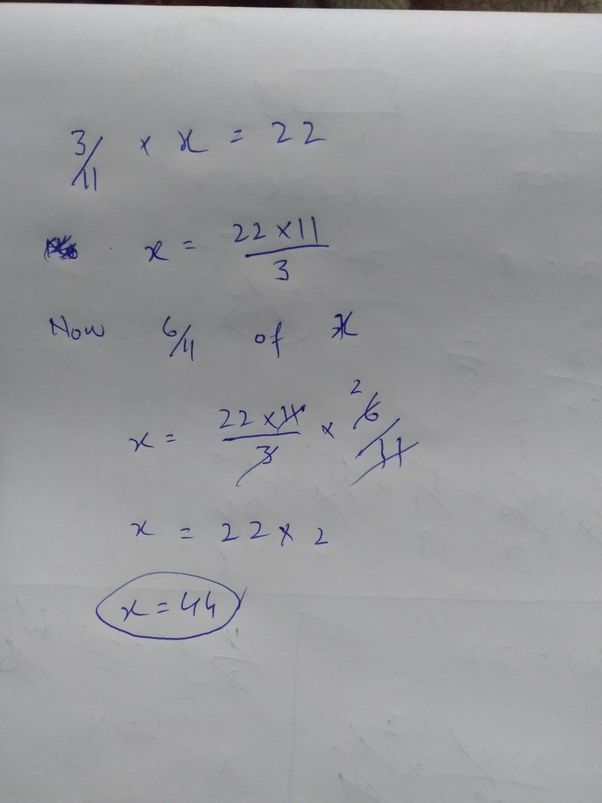 3/11 × x = 22
x = 22 × 11 / 3
Now 6/11 of x
x = 22 × 11 / 3 × 2 6/11
x = 22 × 2
x = 44